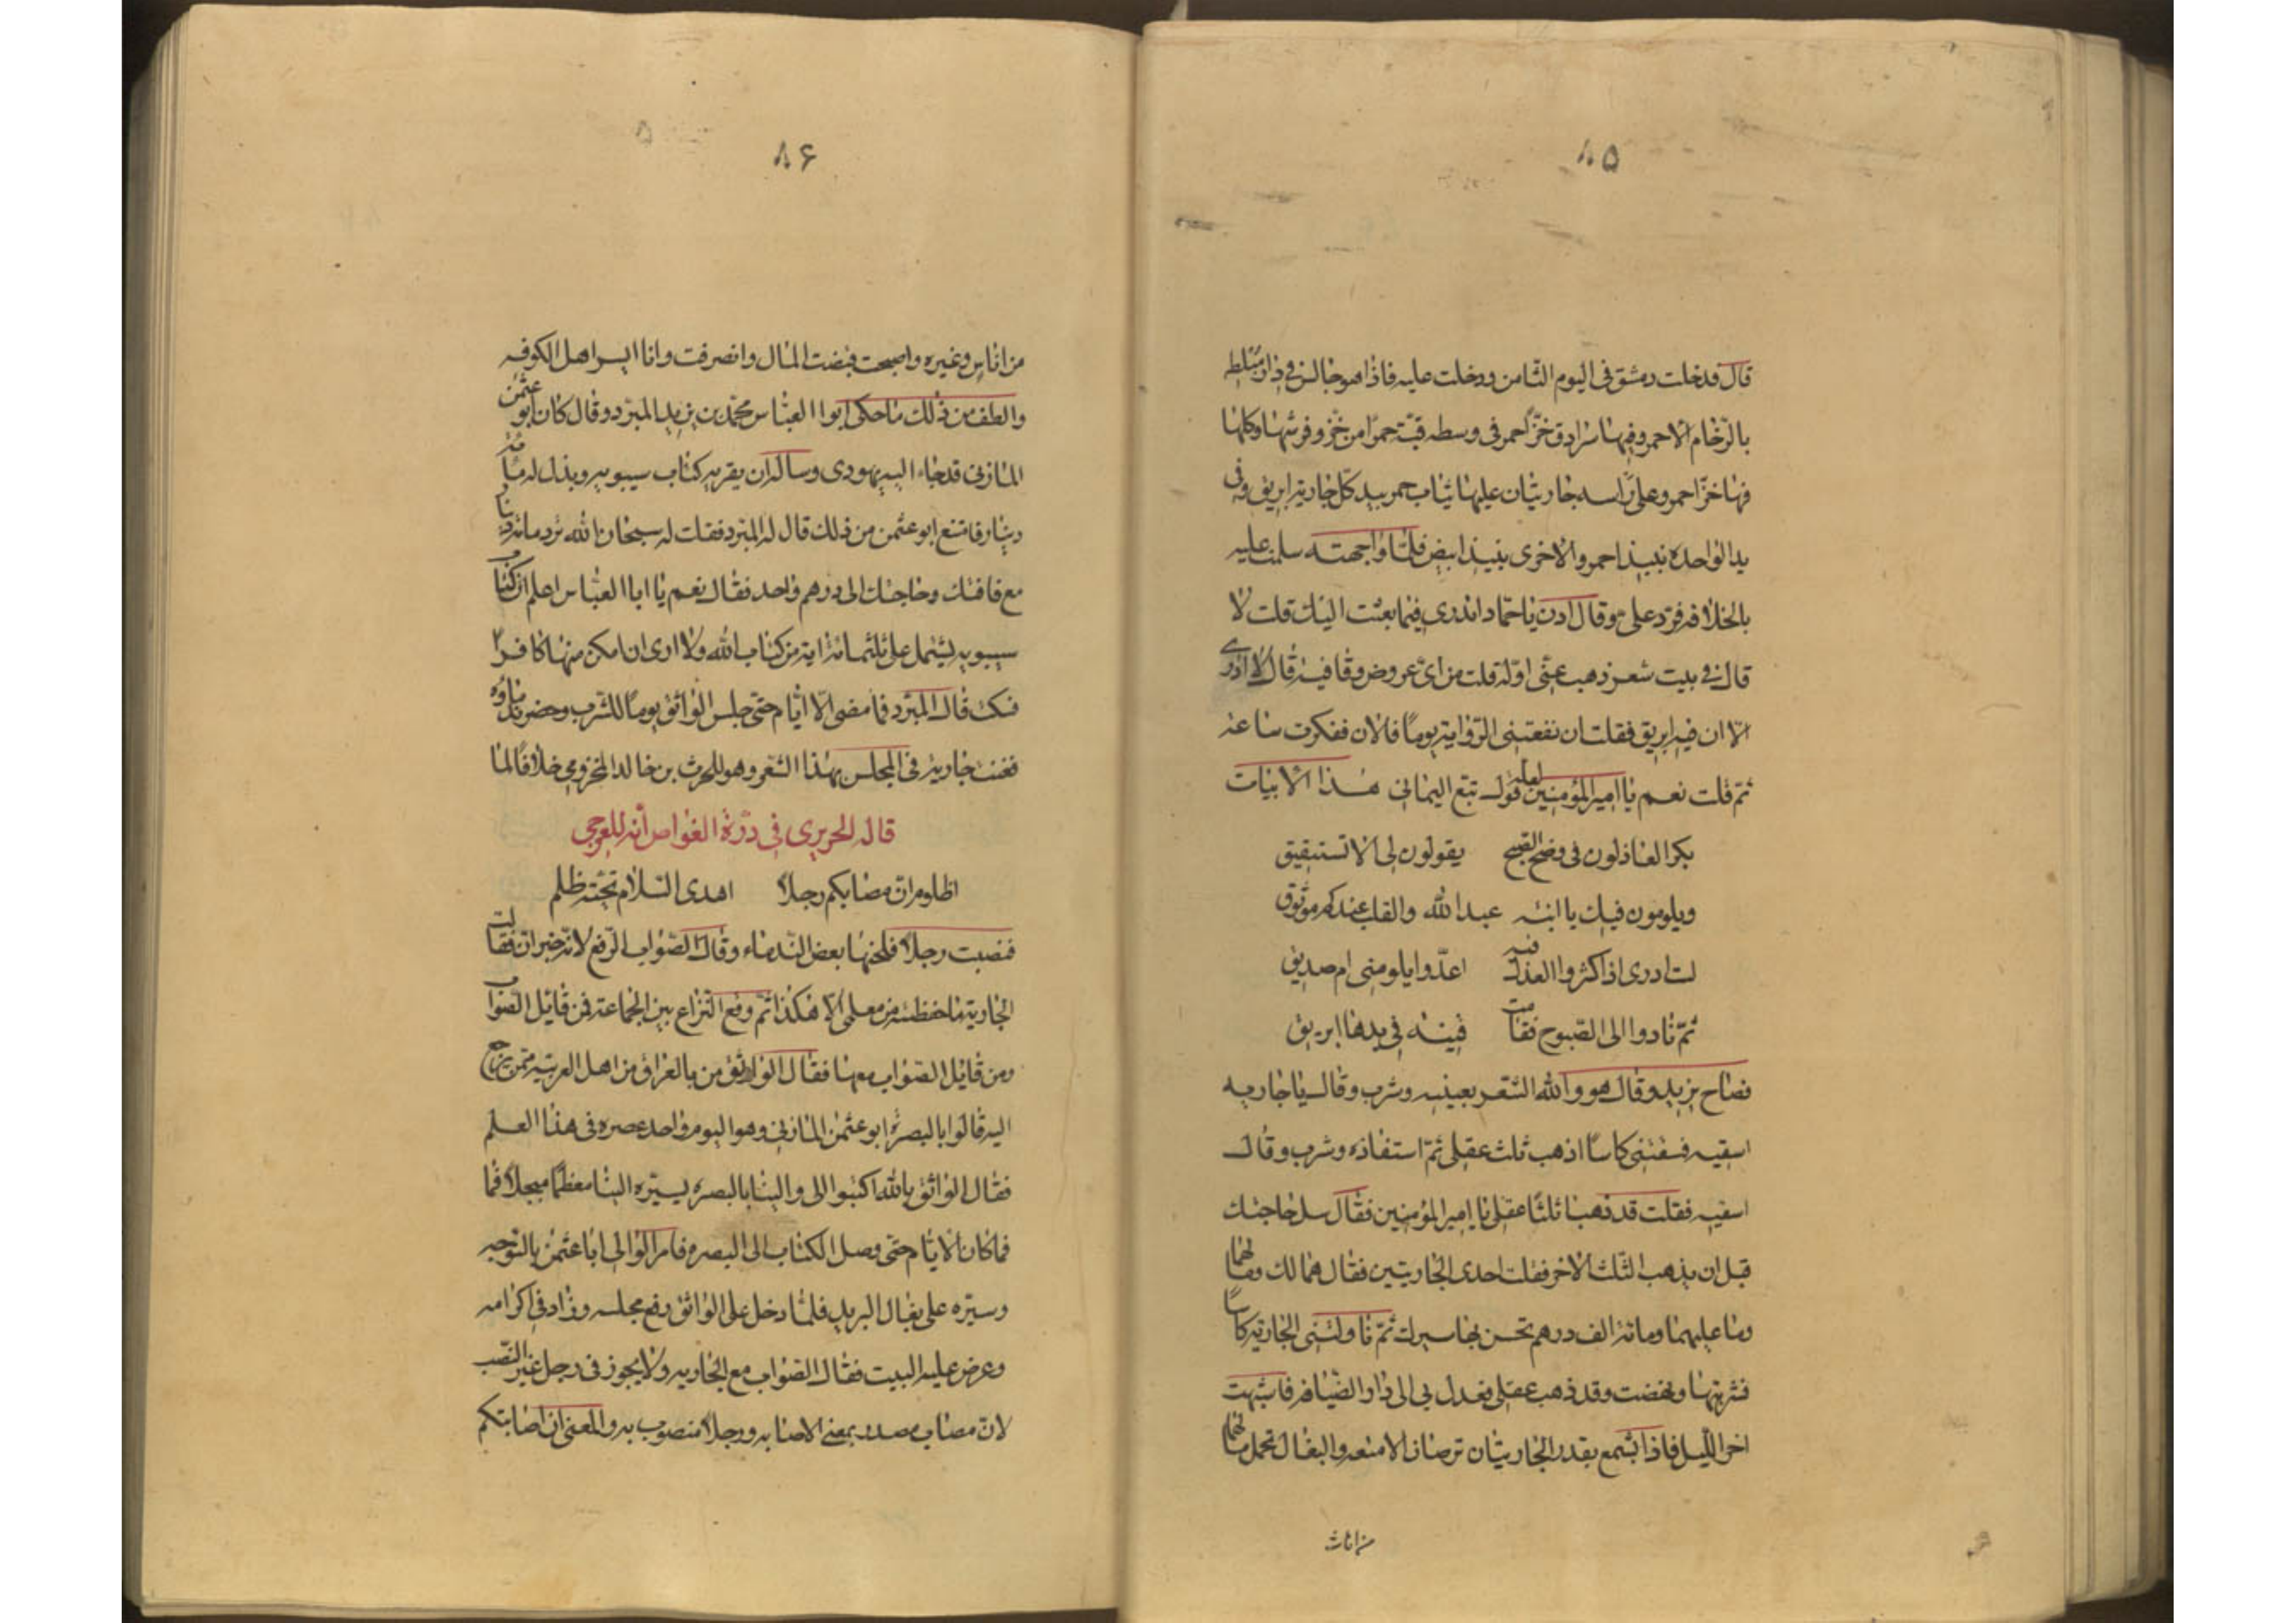 ٨۵
قال فدخلت دمشق فى اليوم الثامن ودخلت عليه فاذا هو جالس فى دار مبلطه
بالرخام الاحمر وفيها سرادق خز احمر فى وسطه قبة حمرا من خز وفرشها وكلما
فيها خز احمر وعلى راسه جاريتان عليهما ثياب حمر بيد كل جارية ابريق وفى
يد الواحده نبيذ احمر والاخرى بنبيذ ابيض فلما واجهته سلمت عليه
بالخلافه فرد على وقال ادن يا حماد اتدرى فيما بعثت اليك قلت لا
قال فى بيت شعر ذهب عنى اوله قلت من اى عروض وقافية قال لا ادرى
الا ان فيه ابريق فقلت ان نفعتنى الرواية يوما فالان ففكرت ساعة
ثم قلت نعم يا امير المؤمنين لعله قول تبع اليمانى هذا الابيات
بكر العاذلون فى وضح الصبح يقولون لى الا تستفيق
ويلومون فيك يا ابنة عبد الله والقلب عندكم موثوق
لست ادرى اذ اكثروا العذل فيه اعدوا يلومنى ام صديق
ثم نادوا الى الصبوح فقامت قينة فى يدها ابريق
فصاح يزيد وقال هو والله الشعر بعينه وشرب وقال يا جاريه
اسقيه فسقتنى كاسا اذهب ثلث عقلى ثم استفاده وشرب وقال
اسقيه فقلت قد ذهب ثلثا عقلى يا امير المؤمنين فقال سل حاجتك
قبل ان يذهب الثلث الاخر فقلت احدى الجاريتين فقال هما لك ومالهما
وما عليهما ومائة الف درهم تحسن بها سيرك ثم ناولتنى الجارية كاسا
فشربتها ونهضت وقد ذهب عقلى فعدل بى الى دار الضيافه فانتبهت
اخر الليل فاذا بشمع يقد والجاريتان ترصان الامتعه والبغال تحمل مالهما
من اثاث
٨۶
من اثاث وغيره واصبحت فقبضت المال وانصرفت وانا ايسر اهل الكوفه
والطف من ذلك ما حكى ابوا العباس محمد بن يزيد المبرد وقال كان ابو عثمن
المازنى قد جاء اليه يهودى وساله ان يقريه كتاب سيبويه وبذل له مائة
دينار فامتنع ابو عثمن من ذلك قال له المبرد فقلت له سبحان الله ترد مائة دينار
مع فاقتك وحاجتك الى درهم واحد فقال نعم يا ابا العباس اعلم ان كتاب
سيبويه يشتمل على ثلثمائة اية من كتاب الله ولا ارى ان امكن منها كافرا
فسكت قال المبرد فما مضى الا ايام حتى جلس الواثق يوما للشرب وحضر ندماؤه
فغنت جارية فى المجلس بهذا الشعر وهو للحرث بن خالد المخزومى خلافا لما
قاله الحريرى فى درة الغواص انه للعرجى
اظلوم ان مصابكم رجلا اهدى السلام تحية ظلم
فنصبت رجلا فلحنها بعض الندماء وقال الصواب الرفع لانه خبر ان فقالت
الجارية ما حفظته من معلمى الا هكذا ثم وقع النزاع بين الجماعة فمن قايل الصواب
ومن قايل الصواب معها فقال الواثق من بالعراق من اهل العربية ممن يرجع
اليه قالوا بالبصرة ابو عثمن المازنى وهو اليوم واحد عصره فى هذا العلم
فقال الواثق بالله اكتبوا الى والينا بالبصره يسيره الينا معظما مبجلا فما
فما كان الا ايام حتى وصل الكتاب الى البصره فامر الوالى ابا عثمن بالتوجه
وسيره على بغال البريد فلما دخل على الواثق رفع مجلسه وزاد فى اكرامه
وعرض عليه البيت فقال الصواب مع الجاريه ولا يجوز فى رجل غير النصب
لان مصاب مصدر بمعنى الاصابه ورجلا منصوب به والمعنى ان اصابتكم